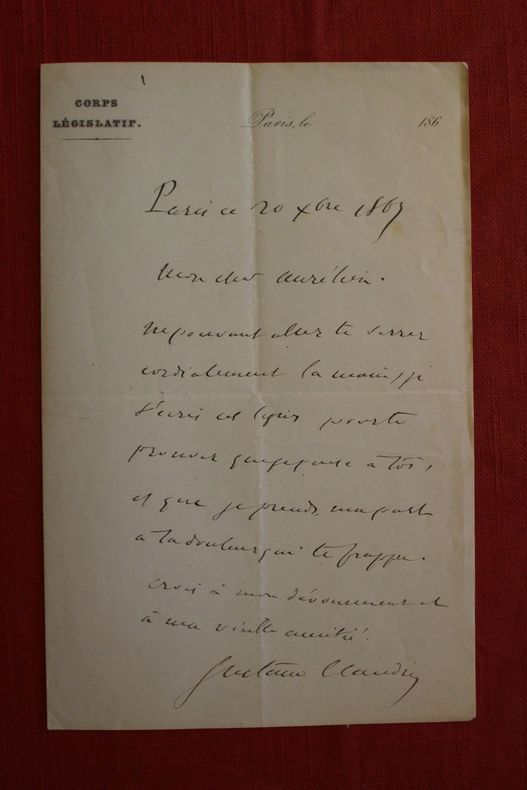 CORPS
LÉGISLATIF.
Paris, le 186
Paris ce 20 xbre 1867
Mon cher Aurélien.
Ne pouvant aller te serrer
cordialement la main, je
t'écris ces lignes pour te
prouver que je pense à toi,
et que je prends ma part
a ta douleur qui te frappe.
crois à mon dévouement et
à ma vieille amitié.
Gustave Claudin